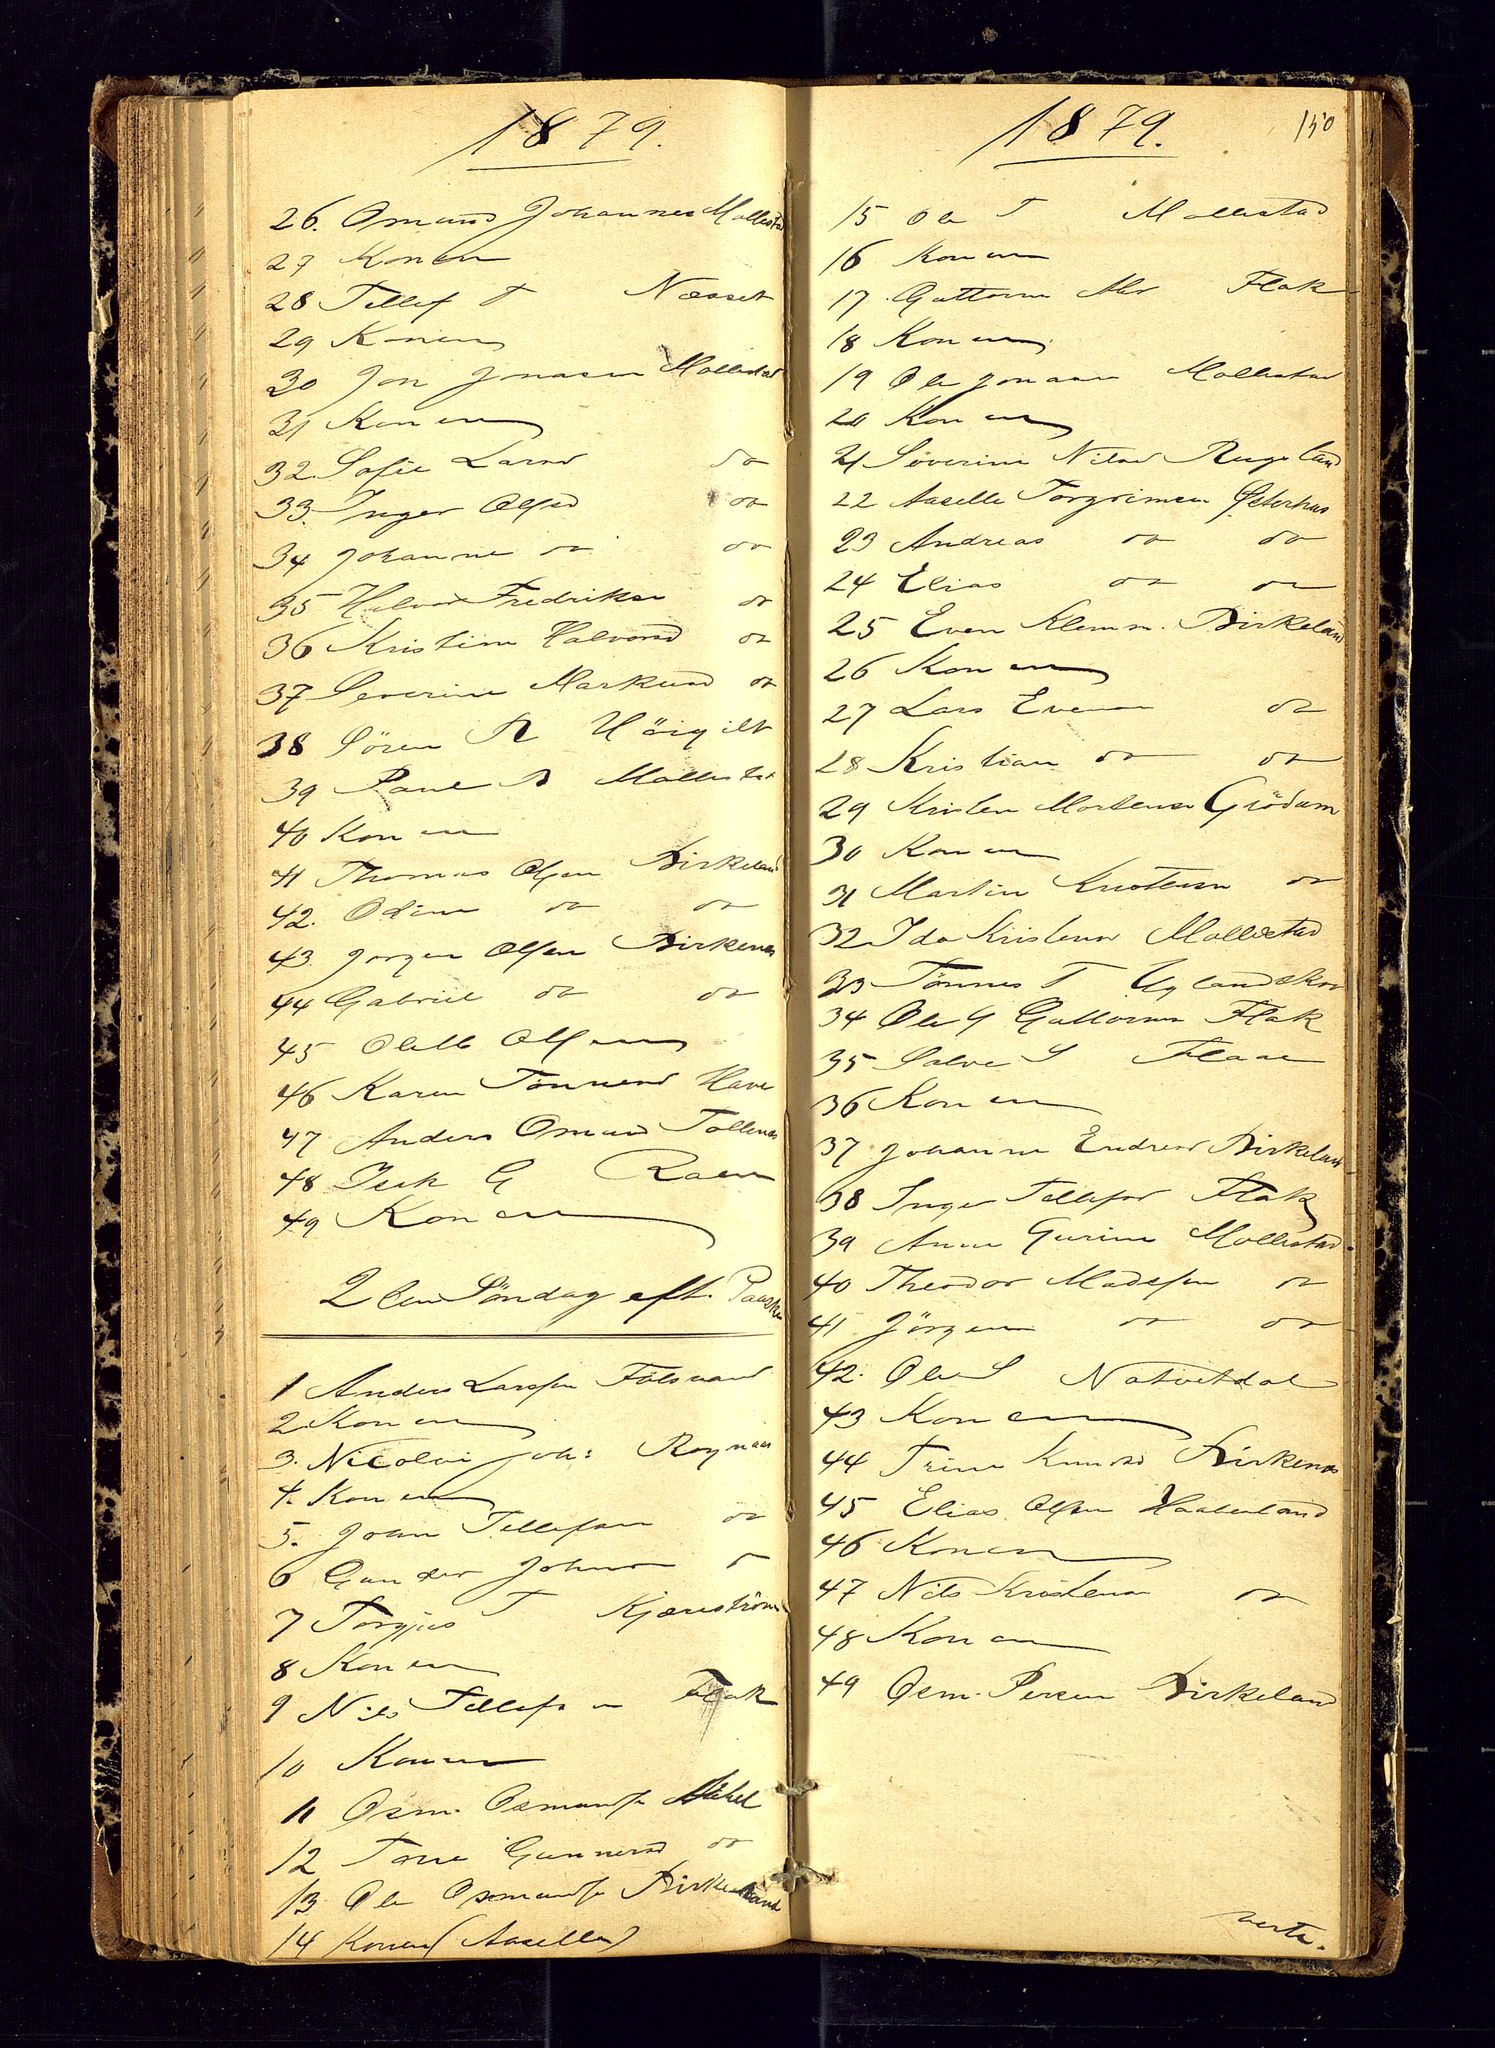 1879.
26. Omund Johannes Mollestad
27 Konen
28 Tellef T Næsset
29 Konen
30 Jon Jonasen Mollestad
31 Konen
32. Sofie Larsd do
33. Inger Olsd do
34 Johanne do do
35 Halvor Fredriks do
36 Kristine Halvorsd do
37 Severine Markusd do
38 Sören R Höigilt
39 Paul B Mollestad
40 Konen
41 Thomas Olsen Birkeland
42. Odin do do
43 Jorgen Olsen Birkenes
44 Gabriel do do
45 Olelle Olsen
46 Karen Tönnesd Have
47 Anders Omund Tollenes
48 G Raen
49 Konen
2den Söndag eft. Paaske
1 Anders Larssen Fölsvand
2 Konen
3. Nicolai Joh: Roynaas
4. Konen
5. John Tellefsen do
6 Gunder Johnsen do
7 Torgjus T Kjærström
8 Konen
9 Nils Tellefsen Flak
10 Konen
11 Osm. Osmunds
12 Tone Gunnersd do
13 Ole Osmunds Birkeland
14 Konen Aaselle
1879.
150
15 Ole T Mollestad
16 Konen
17. Guttorm Flak
18 Konen
19 Ole Jonasen Mollestad
20 Konen
21 Söverine Nilsd Rugsland
22 Aaselle Torgrimsen Østerhus
23 Andreas do do
24 Elias do do
25 Even Klemm. Birkeland
26 Konen
27 Lars Evensen do
28 Kristian do do
29 Kristen Mortensen Grödum
30 Konen
31 Martin Kristensen do
32 Ida Kristensd Mollestad
33 Tönnes T Uglandskov
34 Ole G Guttormsen Flak
35 Salve S Flaae
36 Konen
37 Johanne Endresd Birkeland
38 Inger Tellefsd Flak
39 Anne Gurine Mollestad.
40 Theodor Madssen do
41 Jörgen do do
42. Ole S Natvetdal
43 Konen
44 Trine Knudsd Birkenes
45 Elias Olsen Haaberland
46 Konen
47 Nils Kristensen do
48 Konen
49 Osm. Persen Birkeland
verte.